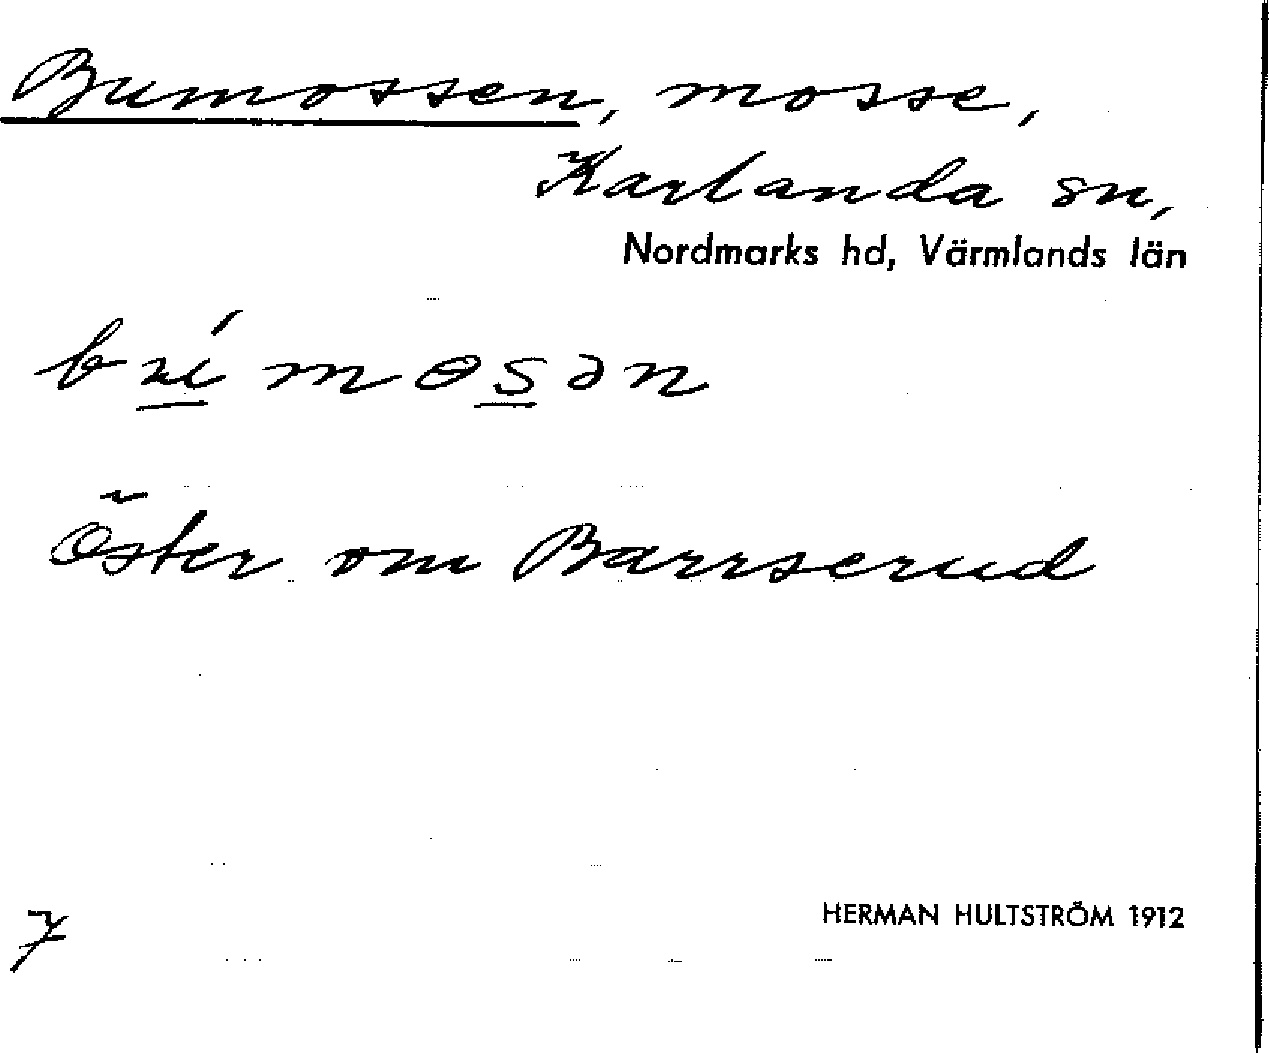 Bumossen, mosse,
Karlanda sn,
Nordmarks hd, Värmlands län
Öster om Barrserud
7
HERMAN HULTSTRÖM 1912